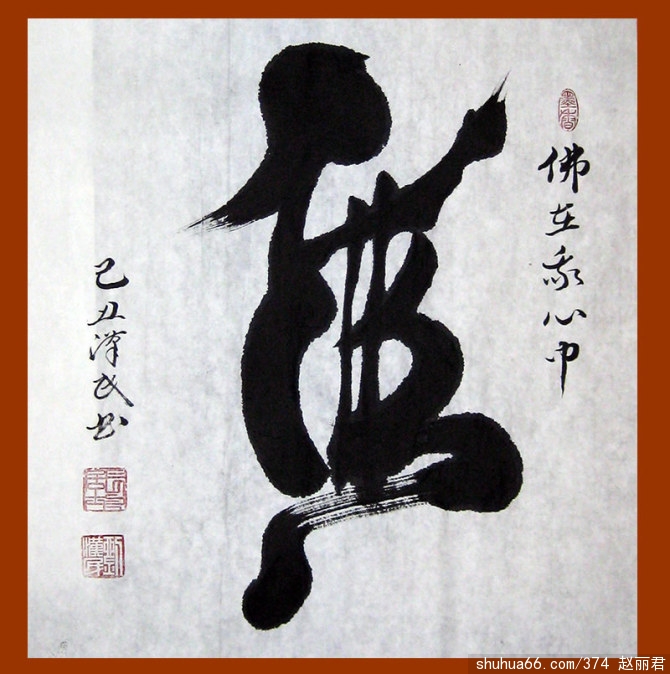 墨香
佛在我心中
佛
己丑漢民书
shuhua66.com/374 赵丽君